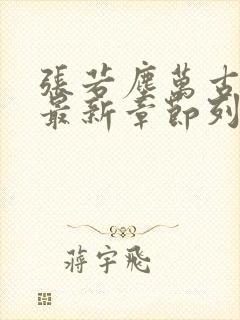 張若塵萬古
最新章節列
蔣宇飛